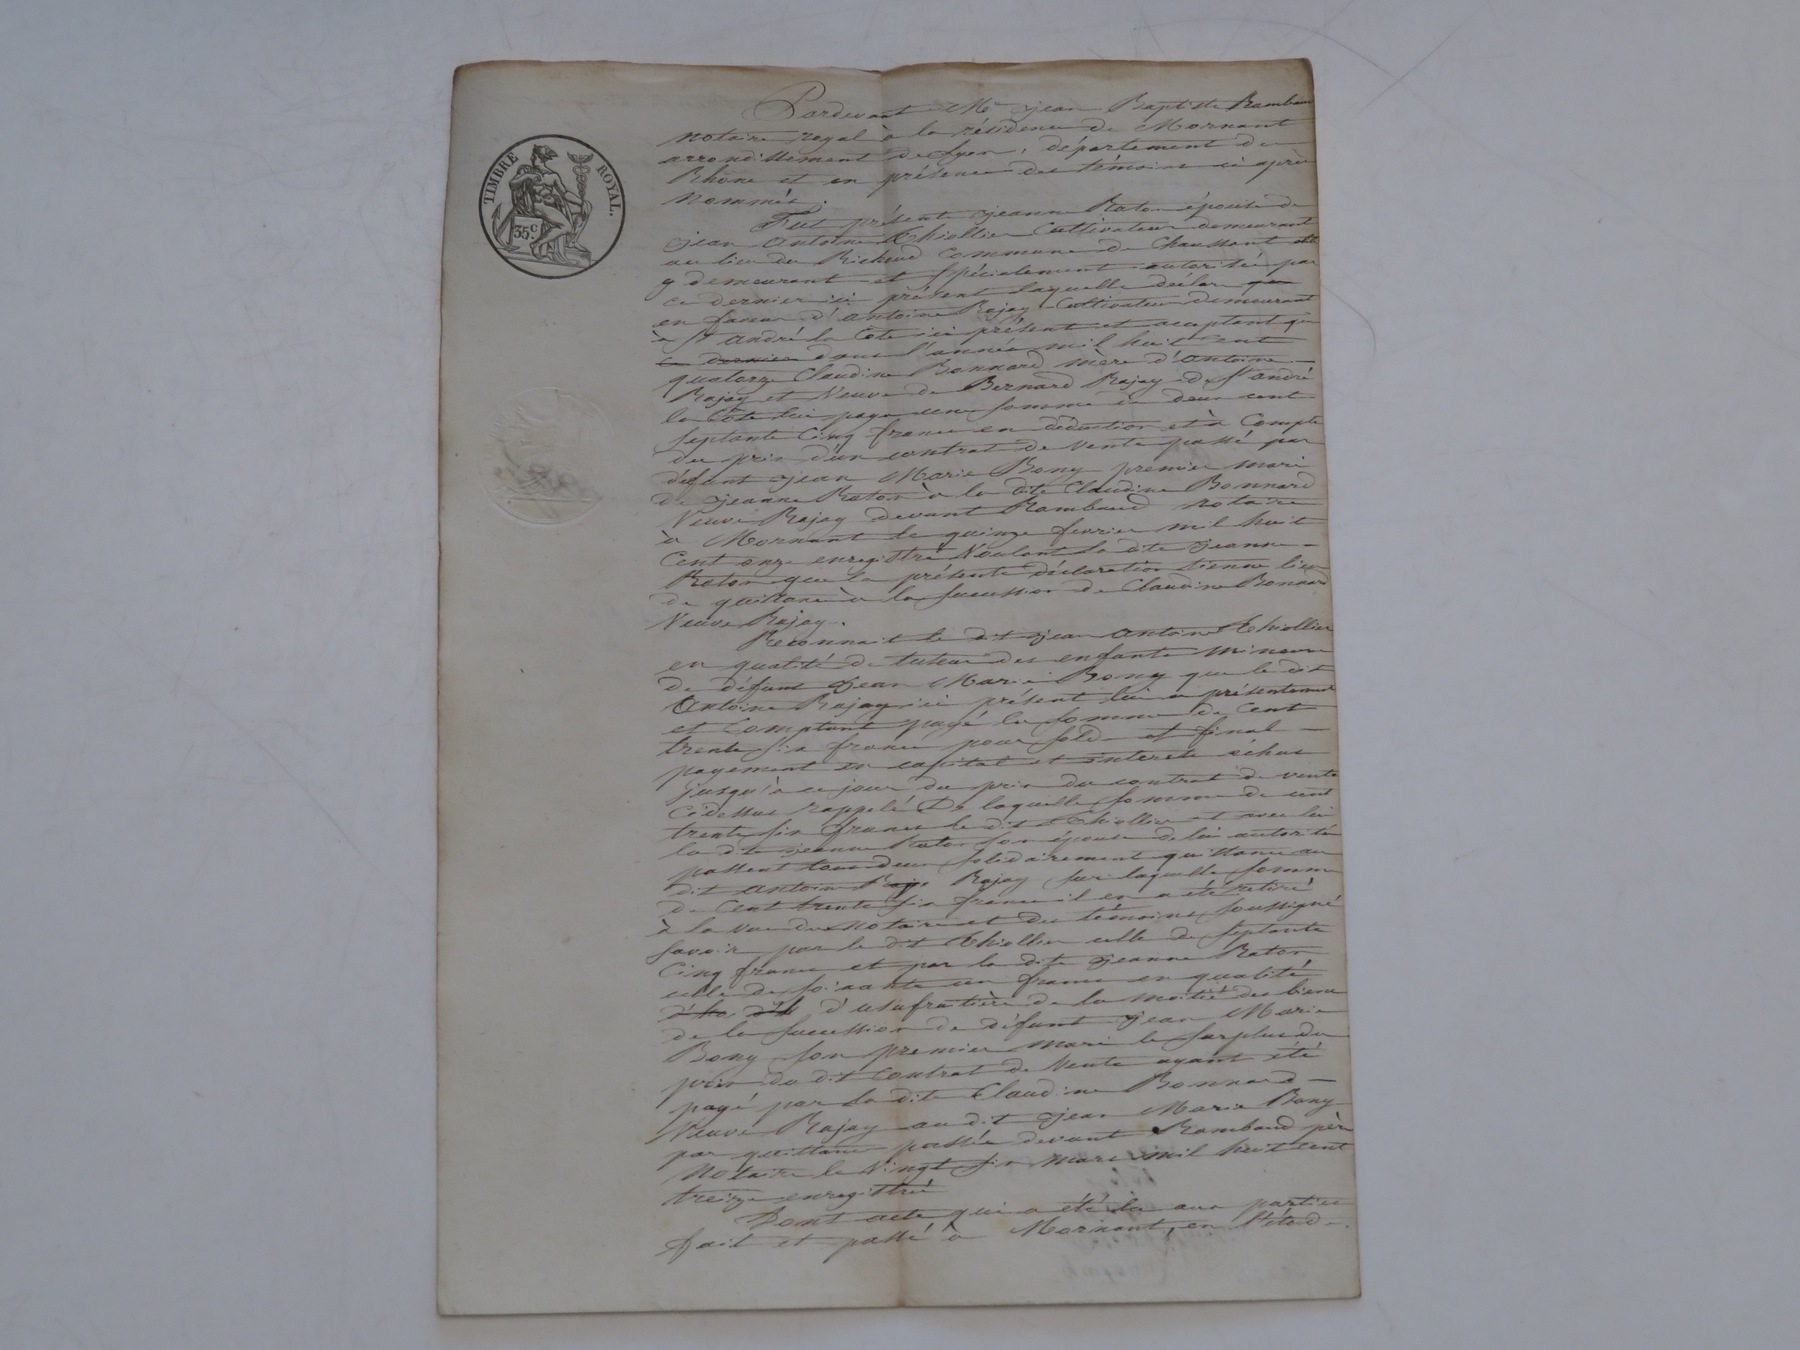 TIMBRE ROYAL.
35c
Pardevant Me jean Baptiste Rambaud
notaire royal à la résidence de Mornant
arrondissement de Lyon, département du
Rhône et en présence des témoins ci après
nommés;
Fut présent jeanne Raton épouse de
jean antoine Thiollier Cultivateur demeurant
au lieu du Richoud Commune de Chaussant
y demeurant et spécialement autorisée par
ce dernier ici présent laquelle déclare
en faveur d'antoine Rajay Cultivateur demeurant
à St andré la Côte ici présent et acceptant que
ce dernier dans l'année mil huit cent
quatorze Claudine Bonnard mère d'antoine
Rajay et Veuve de Bernard Rajay de St andré
la Côte lui paya une somme de deux cent
septante Cinq francs en déduction et à Compte
du prix d'un contrat de vente passé par
défunt jean Marie Bony premier mari
de jeanne Raton à la dite Claudine Bonnard
Veuve Rajay devant Rambaud notaire
à Mornant le quinze fevrier mil huit
Cent onze enregistré Voulant la dite jeanne
Raton que la présente déclaration tienne lieu
de quittance à la succession de Claudine Bonnard
Veuve Rajay.
Reconnait le dit jean antoine Thiollier
en qualité de tuteur des enfants mineurs
de défunt jean Marie Bony que le dit
antoine Rajay ici présent lui a présentement
et Comptant payé la somme de Cent
trente six francs pour solde et final
payement en capital et interets échus
jusqu'à ce jour du prix du contrat de vente
Cidessus rappelé De laquelle somme de cent
trente six francs le dit Thiollier et avec lui
la dite jeanne Raton son épouse de lui autorisée
passent tous deux solidairement quittance au
dit antoine Raje Rajay sur laquelle somme
de Cent trente six francs il en a été retiré
à la vue du notaire et des témoins soussigné
savoir par le dit Thiollier celle de septante
Cinq francs et par la dite jeanne Raton
celle de soixante un francs en qualité
d'usufruitière de la moitié des biens
de la succession de défunt jean Marie
Bony son premier mari le surplus du
prix du dit Contrat de Vente ayant été
payé par la dite Claudine Bonnard
Veuve Rajay au dit jean Marie Bony
par quittance passée devant Rambaud père
Notaire le Vingt six mars mil huit cent
treize enregistré
Dont acte qui a été lu aux parties
fait et passé à Mornant, en l'étude.